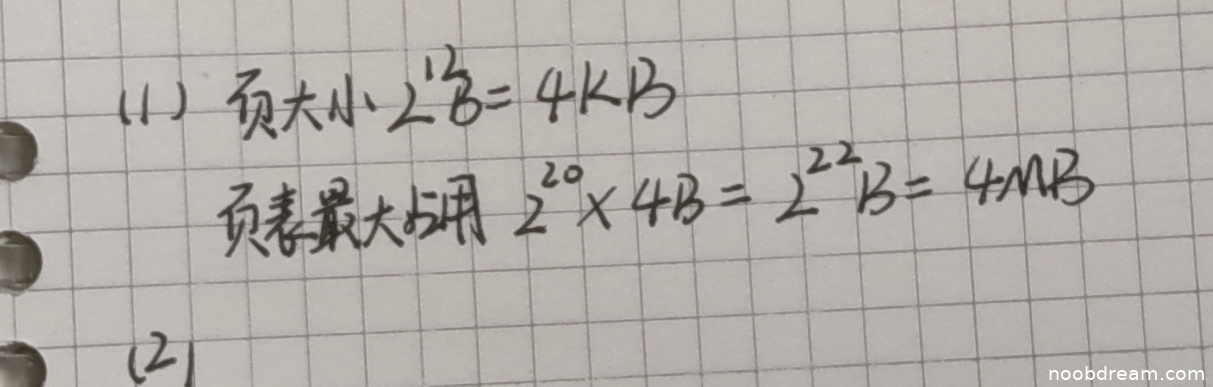 (1) 页大小 2¹²B = 4KB
页表最大占用 2²⁰ × 4B = 2²²B = 4MB
(2)
noobdream.com